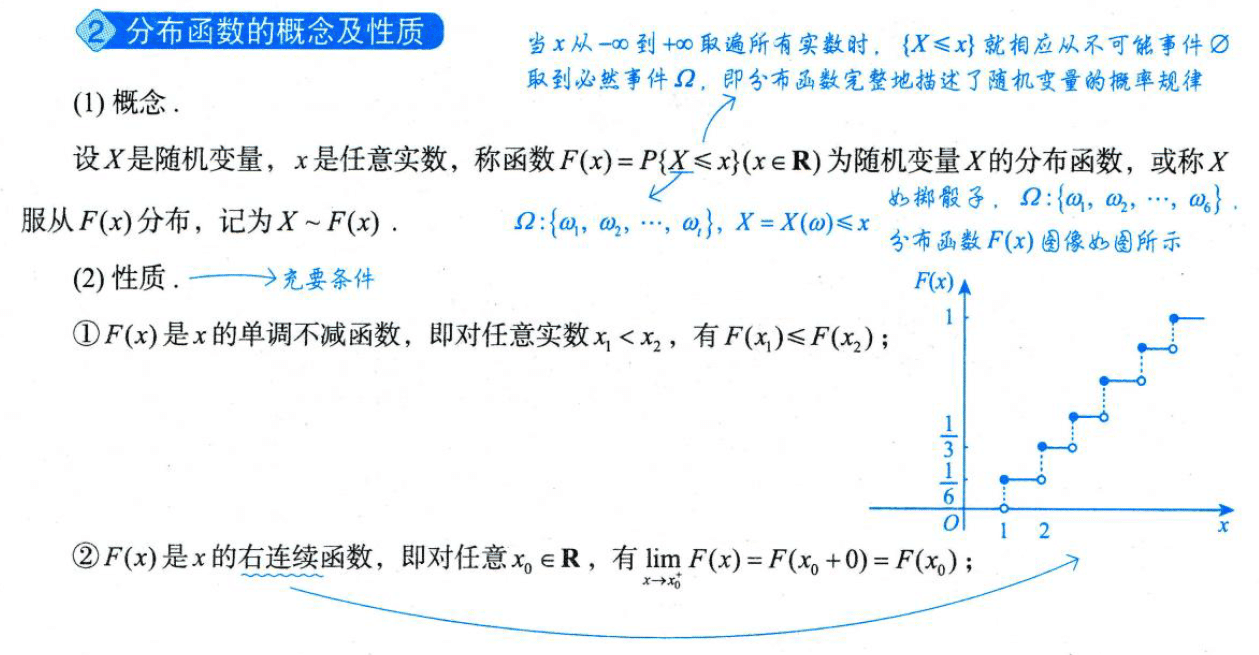 2 分布函数的概念及性质
当 x 从 −∞ 到 +∞ 取遍所有实数时，{X ≤ x} 就相应从不可能事件 ∅
取到必然事件 Ω，即分布函数完整地描述了随机变量的概率规律
(1) 概念．
设 X 是随机变量，x 是任意实数，称函数 F(x) = P{X ≤ x}(x ∈ R) 为随机变量 X 的分布函数，或称 X
服从 F(x) 分布，记为 X ~ F(x)．
Ω:{ω₁, ω₂, …, ωₜ}, X = X(ω) ≤ x
如掷骰子，Ω:{ω₁, ω₂, …, ω₆}．
分布函数 F(x) 图像如图所示
(2) 性质．
充要条件
① F(x) 是 x 的单调不减函数，即对任意实数 x₁ < x₂，有 F(x₁) ≤ F(x₂)；
F(x)
1
1/3
1/6
O
1 2 x
② F(x) 是 x 的右连续函数，即对任意 x₀ ∈ R，有 lim_{x→x₀⁺} F(x) = F(x₀ + 0) = F(x₀)；